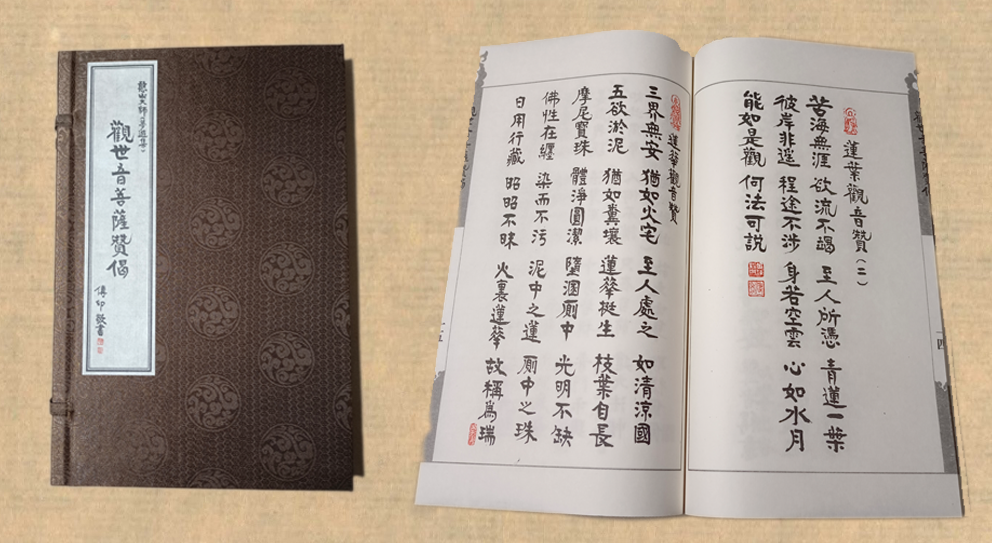 憨山大師(夢遊集)
觀世音菩薩贊偈
傳印敬書
蓮葉觀音贊(二)
苦海無涯 欲流不竭 至人所憑 青蓮一葉
彼岸非遥 程途不涉 身若空雲 心如水月
能如是觀 何法可説
一四
蓮華觀音贊
三界無安 猶如火宅 至人處之 如清涼國
五欲淤泥 猶如糞壤 蓮華挺生 枝葉自長
摩尼寶珠 體淨圓潔 墮溷廁中 光明不缺
佛性在纏 染而不污 泥中之蓮 廁中之珠
日用行藏 昭昭不昧 火裏蓮華 故稱為瑞
一五